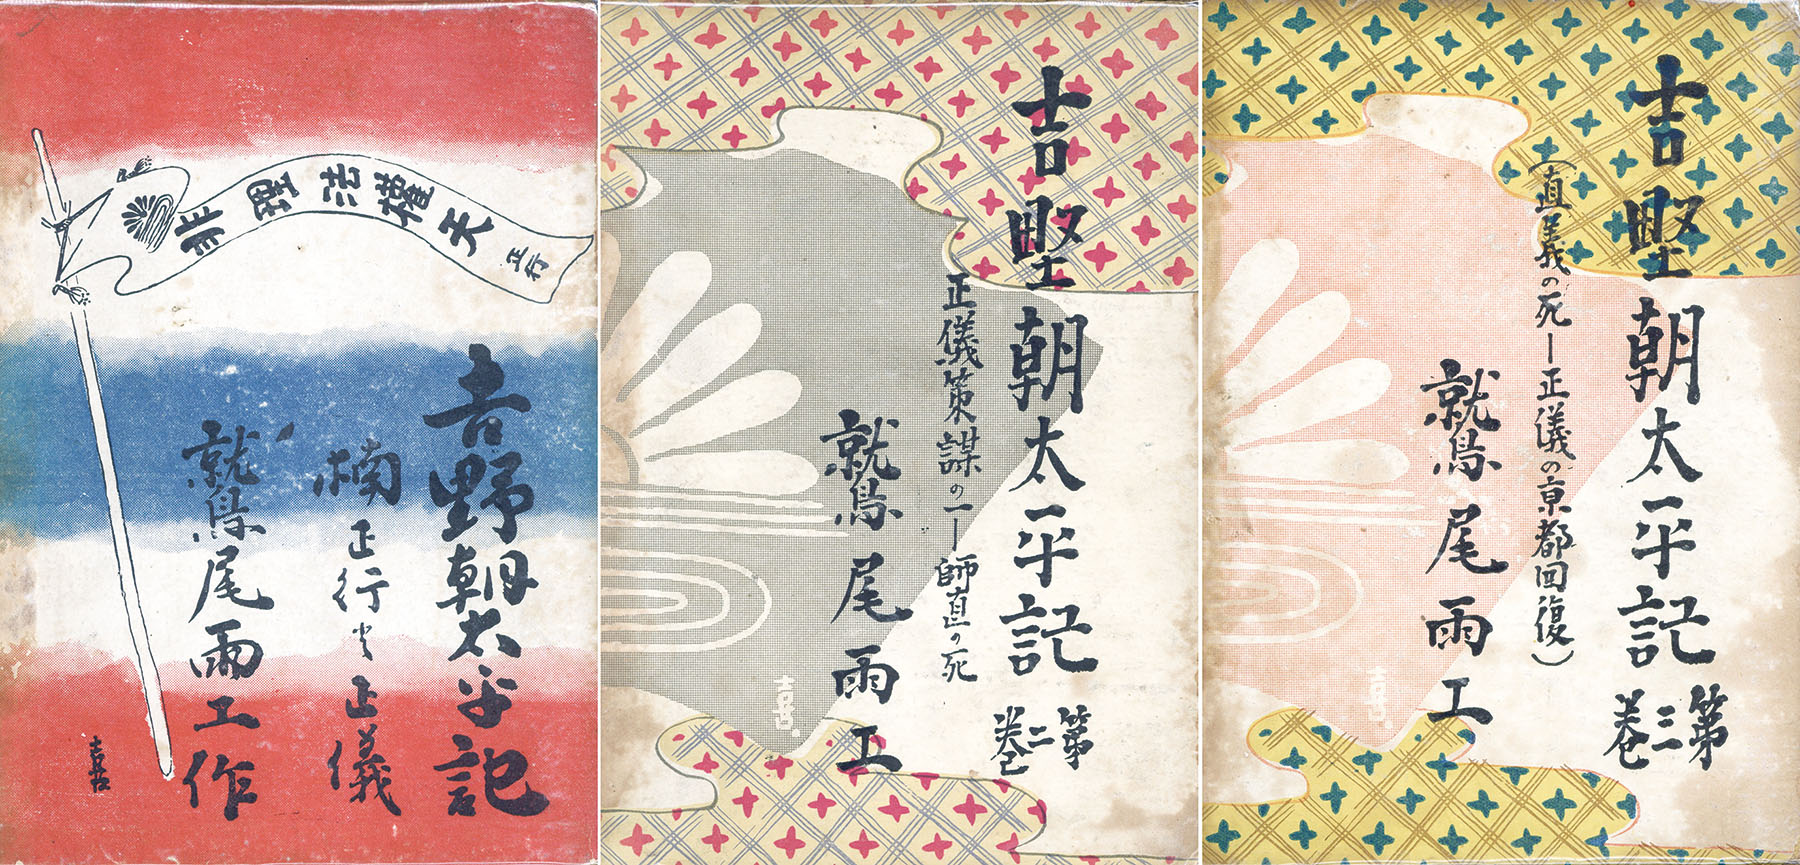 非理法権天
正行
吉野朝太平記
楠
正行と正儀
鷲尾雨工作
吉野朝太平記
第二巻
正儀策謀の一―師直の死
鷲尾雨工
喜
吉野朝太平記
第三巻
(直義の死―正儀の京都回復)
鷲尾雨工